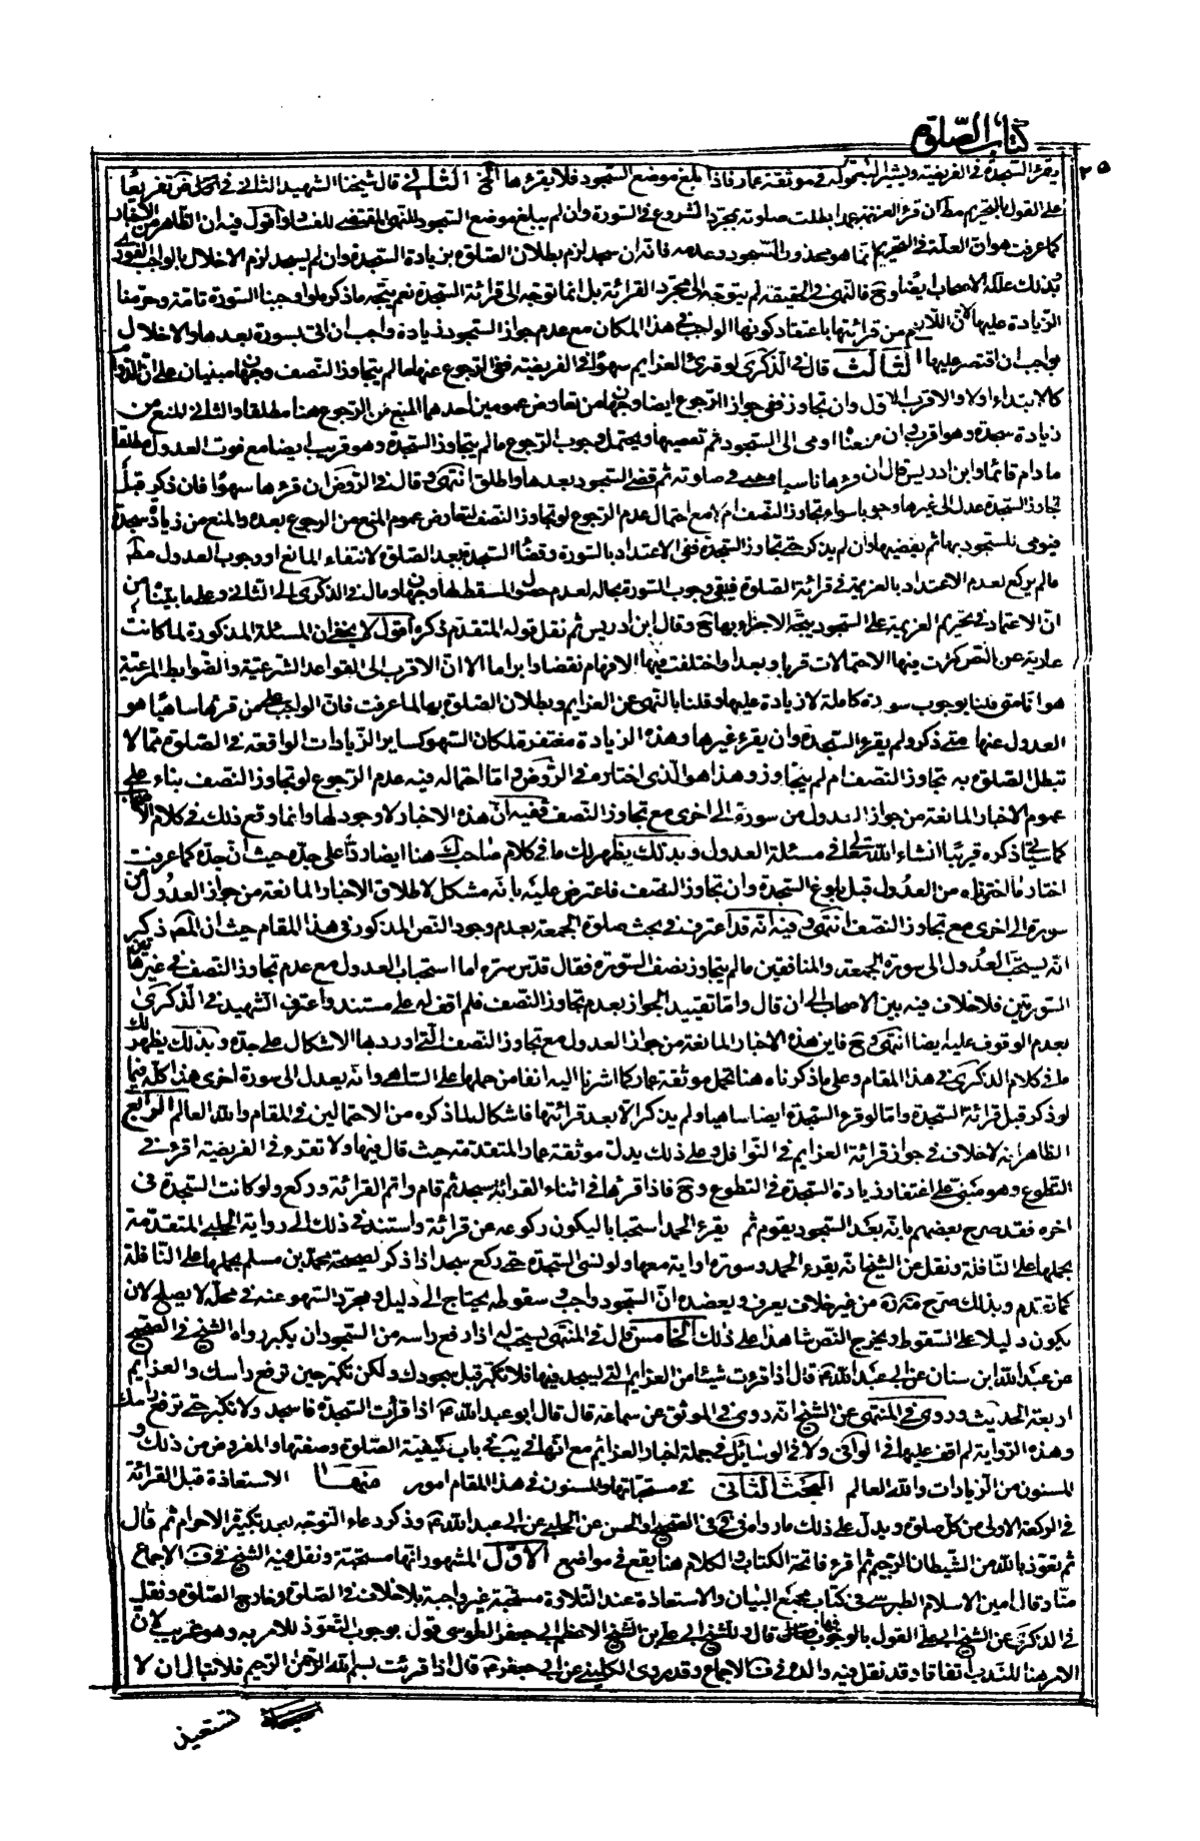 كتاب الصلوة
٢٥
ويقرء السجدة في الفريضة ويشير اليه قوله في موثقة عمار فاذا بلغ موضع السجود فلا يقرءها الخ الثاني قال شيخنا الشهيد الثاني في تفريعا
على القول بالتحريم مط ان قرء العزيمة عمدا بطلت صلوته بمجرد الشروع في السورة وان لم يبلغ موضع السجود للنهى المقتضى للفساد اقول فيه ان الظاهر من الاخبار
كما عرفت هو ان العلة في التحريم انما هو محذور السجود وعدمه فانه ان سجد لزم بطلان الصلوة بزيادة السجدة وان لم يسجد لزم الاخلال بالواجب الفورى
بذلك علله الاصحاب ايضا وح فالنهى في الحقيقة لم يتوجه الى مجرد القرائة بل انما توجه الى قرائة السجدة نعم يتجه ما ذكره لو اوجبنا السورة تامة وحرمنا
الزيادة عليها لان اللازم من قرائتها باعتقاد كونها الواجب في هذا المكان مع عدم جواز السجود زيادة واجب ان اتى بسورة بعدها والاخلال
بواجب ان اقتصر عليها الثالث قال في الذكرى لو قرئ العزايم سهوا في الفريضة ففى الرجوع عنها ما لم يتجاوز النصف وجهان مبنيان على ان الدوام
كالابتداء اولا والاقرب الاول وان تجاوز ففى جواز الرجوع ايضا وجهان من تعارض عمومين احدهما المنع من الرجوع هنا مطلقا والثانى المنع من
زيادة سجدة وهو اقرب وان منعناه اومى الى السجود ثم تقضيها ويحتمل وجوب الرجوع ما لم يتجاوز السجدة وهو قريب ايضا مع فوت العدول مطلقا
ما دام قائما وابن ادريس قال ان قرءها ناسيا مضى في صلوته ثم قضى السجود بعدها واطلق انتهى وقال في الروض ان قرءها سهوا فان ذكر قبل
تجاوز السجدة عدل الى غيرها وجوبا سواء تجاوز النصف ام لا مع احتمال عدم الرجوع لو تجاوز النصف لتعارض عموم المنع من الرجوع بعده والمنع من زيادة سجدة
فيومى للسجود بها ثم يقضيها وان لم يذكر حتى تجاوز السجدة ففى الاعتداد بالسورة وقضاء السجدة بعد الصلوة لانتفاء المانع او وجوب العدول مط
ما لم يركع لعدم الاعتداد بالعزيمة في قرائة الصلوة فيبقى وجوب السورة بحاله لعدم حصول المسقط لها وجهان ومال في الذكرى الى الثانى وعلى ما بيناه من
ان الاعتماد في تحريم العزيمة على السجود يتجه الاجزاء بها ح وقال ابن ادريس ثم نقل قوله المتقدم ذكره اقول لا يخفى ان المسئلة المذكورة لما كانت
عارية عن النص كثرت فيها الاحتمالات قربا وبعدا واختلفت فيها الافهام نقضا وابراما الا ان الاقرب الى القواعد الشرعية والضوابط المرعية
هو انا متى قلنا بوجوب سورة كاملة لا زيادة عليها وقلنا بالنهى عن العزايم وبطلان الصلوة بها لما عرفت فان الواجب على من قرءها ساهيا هو
العدول عنها متى ذكر ولم يقرء السجدة وان يقرء غيرها وهذه الزيادة مغتفرة لمكان السهو كساير الزيادات الواقعة في الصلوة مما لا
تبطل الصلوة به تجاوز النصف ام لم يتجاوز وهذا هو الذى اختاره في الروض واما احتماله فيه عدم الرجوع لو تجاوز النصف بناء على
عموم الاخبار المانعة من جواز العدول من سورة الى اخرى مع تجاوز النصف ففيه ان هذه الاخبار لا وجود لها وانما وقع ذلك في كلام الاصحاب
كما سياتى ذكره قريبا انشاء الله تعالى في مسئلة العدول وبذلك يظهر لك ما في كلام صاحب ك هنا ايضا ردا على جده حيث ان جده كما عرفت
اختار ما اخترناه من العدول قبل بلوغ السجدة وان تجاوز النصف فاعترض عليه بانه مشكل لاطلاق الاخبار المانعة من جواز العدول من
سورة الى اخرى مع تجاوز النصف انتهى وفيه انه قد اعترف في بحث صلوة الجمعة بعدم وجود النص المذكور في هذا المقام حيث ان المص ذكر
انه يستحب العدول الى سورة الجمعة والمنافقين ما لم يتجاوز نصف السورة فقال قدس سره اما استحباب العدول مع عدم تجاوز النصف في غير هاتين
السورتين فلا خلاف فيه بين الاصحاب الى ان قال واما تقييد الجواز بعدم تجاوز النصف فلم اقف له على مستند واعترف الشهيد في الذكرى
بعدم الوقوف عليه ايضا انتهى وح فاين هذه الاخبار المانعة من جواز العدول مع تجاوز النصف التى اورد بها الاشكال على جده وبذلك يظهر لك
ما في كلام الذكرى في هذا المقام وعلى ما ذكرناه هنا تحمل موثقة عمار كما اشرنا اليه انفا من حملها على الساهى وانه يعدل الى سورة اخرى هذا كله فيما
لو ذكر قبل قرائة السجدة واما لو قرء السجدة ايضا ساهيا ولم يذكر الا بعد قرائتها فاشكال لما ذكره من الاحتمالين في المقام والله العالم الرابع
الظاهر انه لا خلاف في جواز قرائة العزايم في النوافل وعلى ذلك يدل موثقة عمار المتقدمة حيث قال فيها ولا تقرء في الفريضة اقرء في
التطوع وهو مبنى على اغتفار زيادة السجدة في التطوع وح فاذا قرءها في اثناء القرائة سجد ثم قام واتم القرائة وركع ولو كانت السجدة في
اخره فقد صرح بعضهم بانه بعد السجود يقوم ثم يقرء الحمد استحبابا ليكون ركوعه عن قرائة واستند في ذلك الى رواية الحلبى المتقدمة
بحملها على النافلة ونقل عن الشيخ انه يقرء الحمد وسورة او اية معها ولو نسى السجدة حتى ركع سجد اذا ذكر لصحيحة محمد بن مسلم بحملها على النافلة
كما تقدم وبذلك صرح من غير خلاف يعرف ويعضده ان السجود واجب وسقوطه يحتاج الى دليل ومجرد السهو عنه في محله لا يصلح لان
يكون دليلا على السقوط ويخرج النص شاهدا على ذلك الخامس قال في المنتهى يستحب له اذا رفع راسه من السجود ان يكبر رواه الشيخ في الصحيح
عن عبد الله ابن سنان عن ابى عبد الله ع قال اذا قرءت شيئا من العزايم التى يسجد فيها فلا تكبر قبل سجودك ولكن تكبر حين ترفع راسك والعزايم
اربعة الحديث وروى في المنتهى عن الشيخ انه روى في الموثق عن سماعة قال قال ابو عبد الله ع اذا قرئت السجدة فاسجد ولا تكبر حتى ترفع راسك
وهذه الرواية لم اقف عليها في الوافى ولا في الوسائل في جملة اخبار العزائم مع انها في يب في باب كيفية الصلوة وصفتها والمفروض من ذلك و
المسنون من الزيادات والله العالم البحث الثانى في مستحباتها والمسنون في هذا المقام امور منها الاستعاذة قبل القرائة
في الركعة الاولى من كل صلوة ويدل على ذلك ما رواه في في الصحيح او الحسن عن الحلبى عن ابى عبد الله ع وذكر دعاء التوجه بعد تكبيرة الاحرام ثم قال
ثم تعوذ بالله من الشيطان الرجيم ثم اقرء فاتحة الكتاب والكلام هنا يقع في مواضع الاول المشهور انها مستحبة ونقل فيه الشيخ في ف الاجماع
منا وقال امين الاسلام الطبرسى في كتاب مجمع البيان والاستعاذة عند التلاوة مستحبة غير واجبة بلا خلاف في الصلوة وخارج الصلوة ونقل
في الذكرى عن الشيخ ابى على القول بالوجوب فيها قال وللشيخ ابى على بن الشيخ الاعظم ابى جعفر الطوسى قول بوجوب التعوذ للامر به وهو غريب لان
الامر هنا للندب اتفاقا وقد نقل فيه والده في ف الاجماع وقد روى الكلينى عن ابى جعفر ع قال اذا قرئت بسم الله الرحمن الرحيم فلا تبالى ان لا
تستعيذ